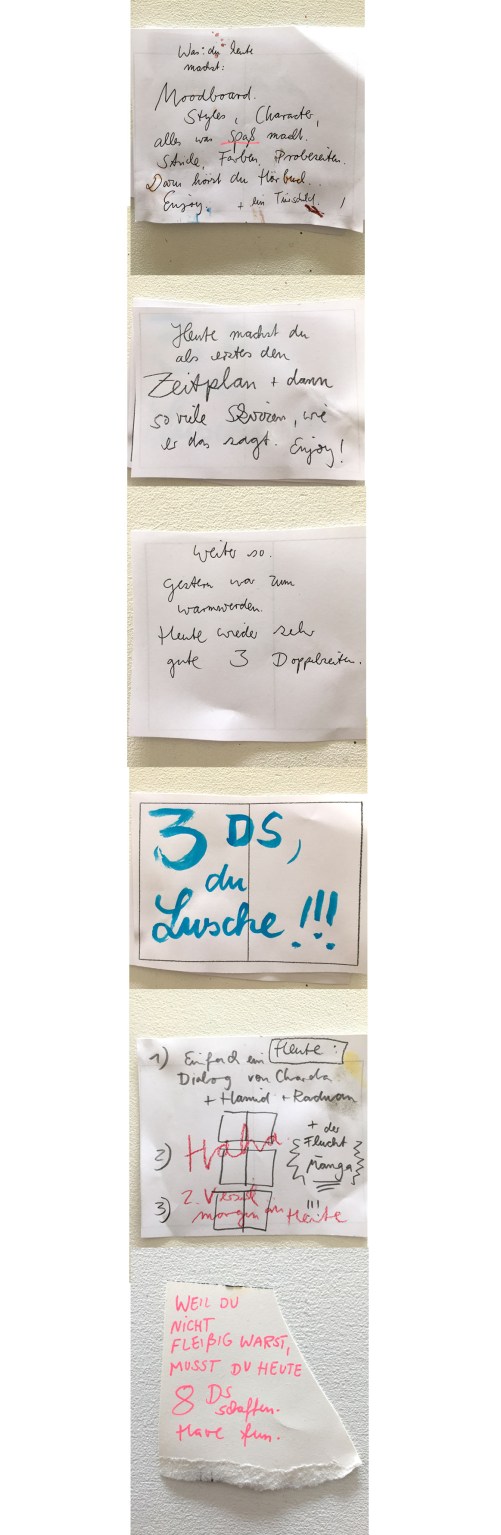 Was du heute
machst:
Moodboard.
Styles, Character,
alles was Spaß macht.
Stride, Farben, Probeseiten.
Dann hörst du Hörbuch.
Enjoy. + ein
Heute machst du
als erstes den
Zeitplan + dann
so viele Skizzen, wie
er das sagt. Enjoy!
Weiter so.
Gestern war zum
warmwerden.
Heute wieder sehr
gute 3 Doppelseiten.
3 DS,
du
Lusche!!!
Heute:
1) Einfach ein
Dialog von
+ Hamid + Radwan
+ der
Flucht
Manga
2) Haha
3) 2. Versuch
morgen
Heute
!!!
WEIL DU
NICHT
FLEIßIG WARST,
MUSST DU HEUTE
8 DS
schaffen.
Have fun.